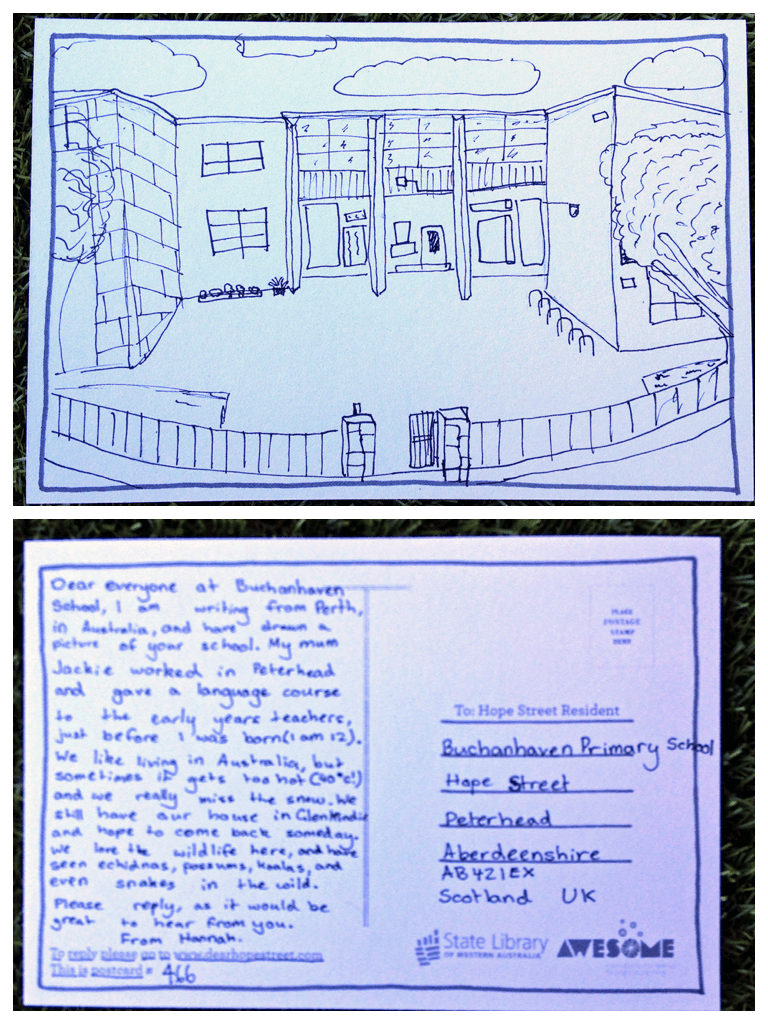 Dear everyone at Buchanhaven
School, I am writing from Perth,
in Australia, and have drawn a
picture of your school. My mum
Jackie worked in Peterhead
and gave a language course
to the early years teachers,
just before I was born (I am 12).
We like living in Australia, but
sometimes it gets too hot (40°c!)
and we really miss the snow. We
still have our house in Glenkindie
and hope to come back someday.
We love the wildlife here, and have
seen echidnas, possums, koalas, and
even snakes in the wild.
Please reply, as it would be
great to hear from you.
From Hannah.
To reply please go to www.dearhopestreet.com
This is postcard # 466
PLACE
POSTAGE
STAMP
HERE
To: Hope Street Resident
Buchanhaven Primary School
Hope Street
Peterhead
Aberdeenshire
AB421EX
Scotland UK
State Library
OF WESTERN AUSTRALIA
AWESOME